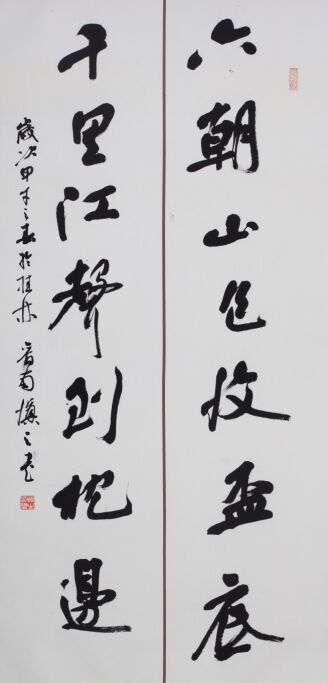 六朝山色收盃底
千里江聲到枕邊
歲次甲午之春於桂林